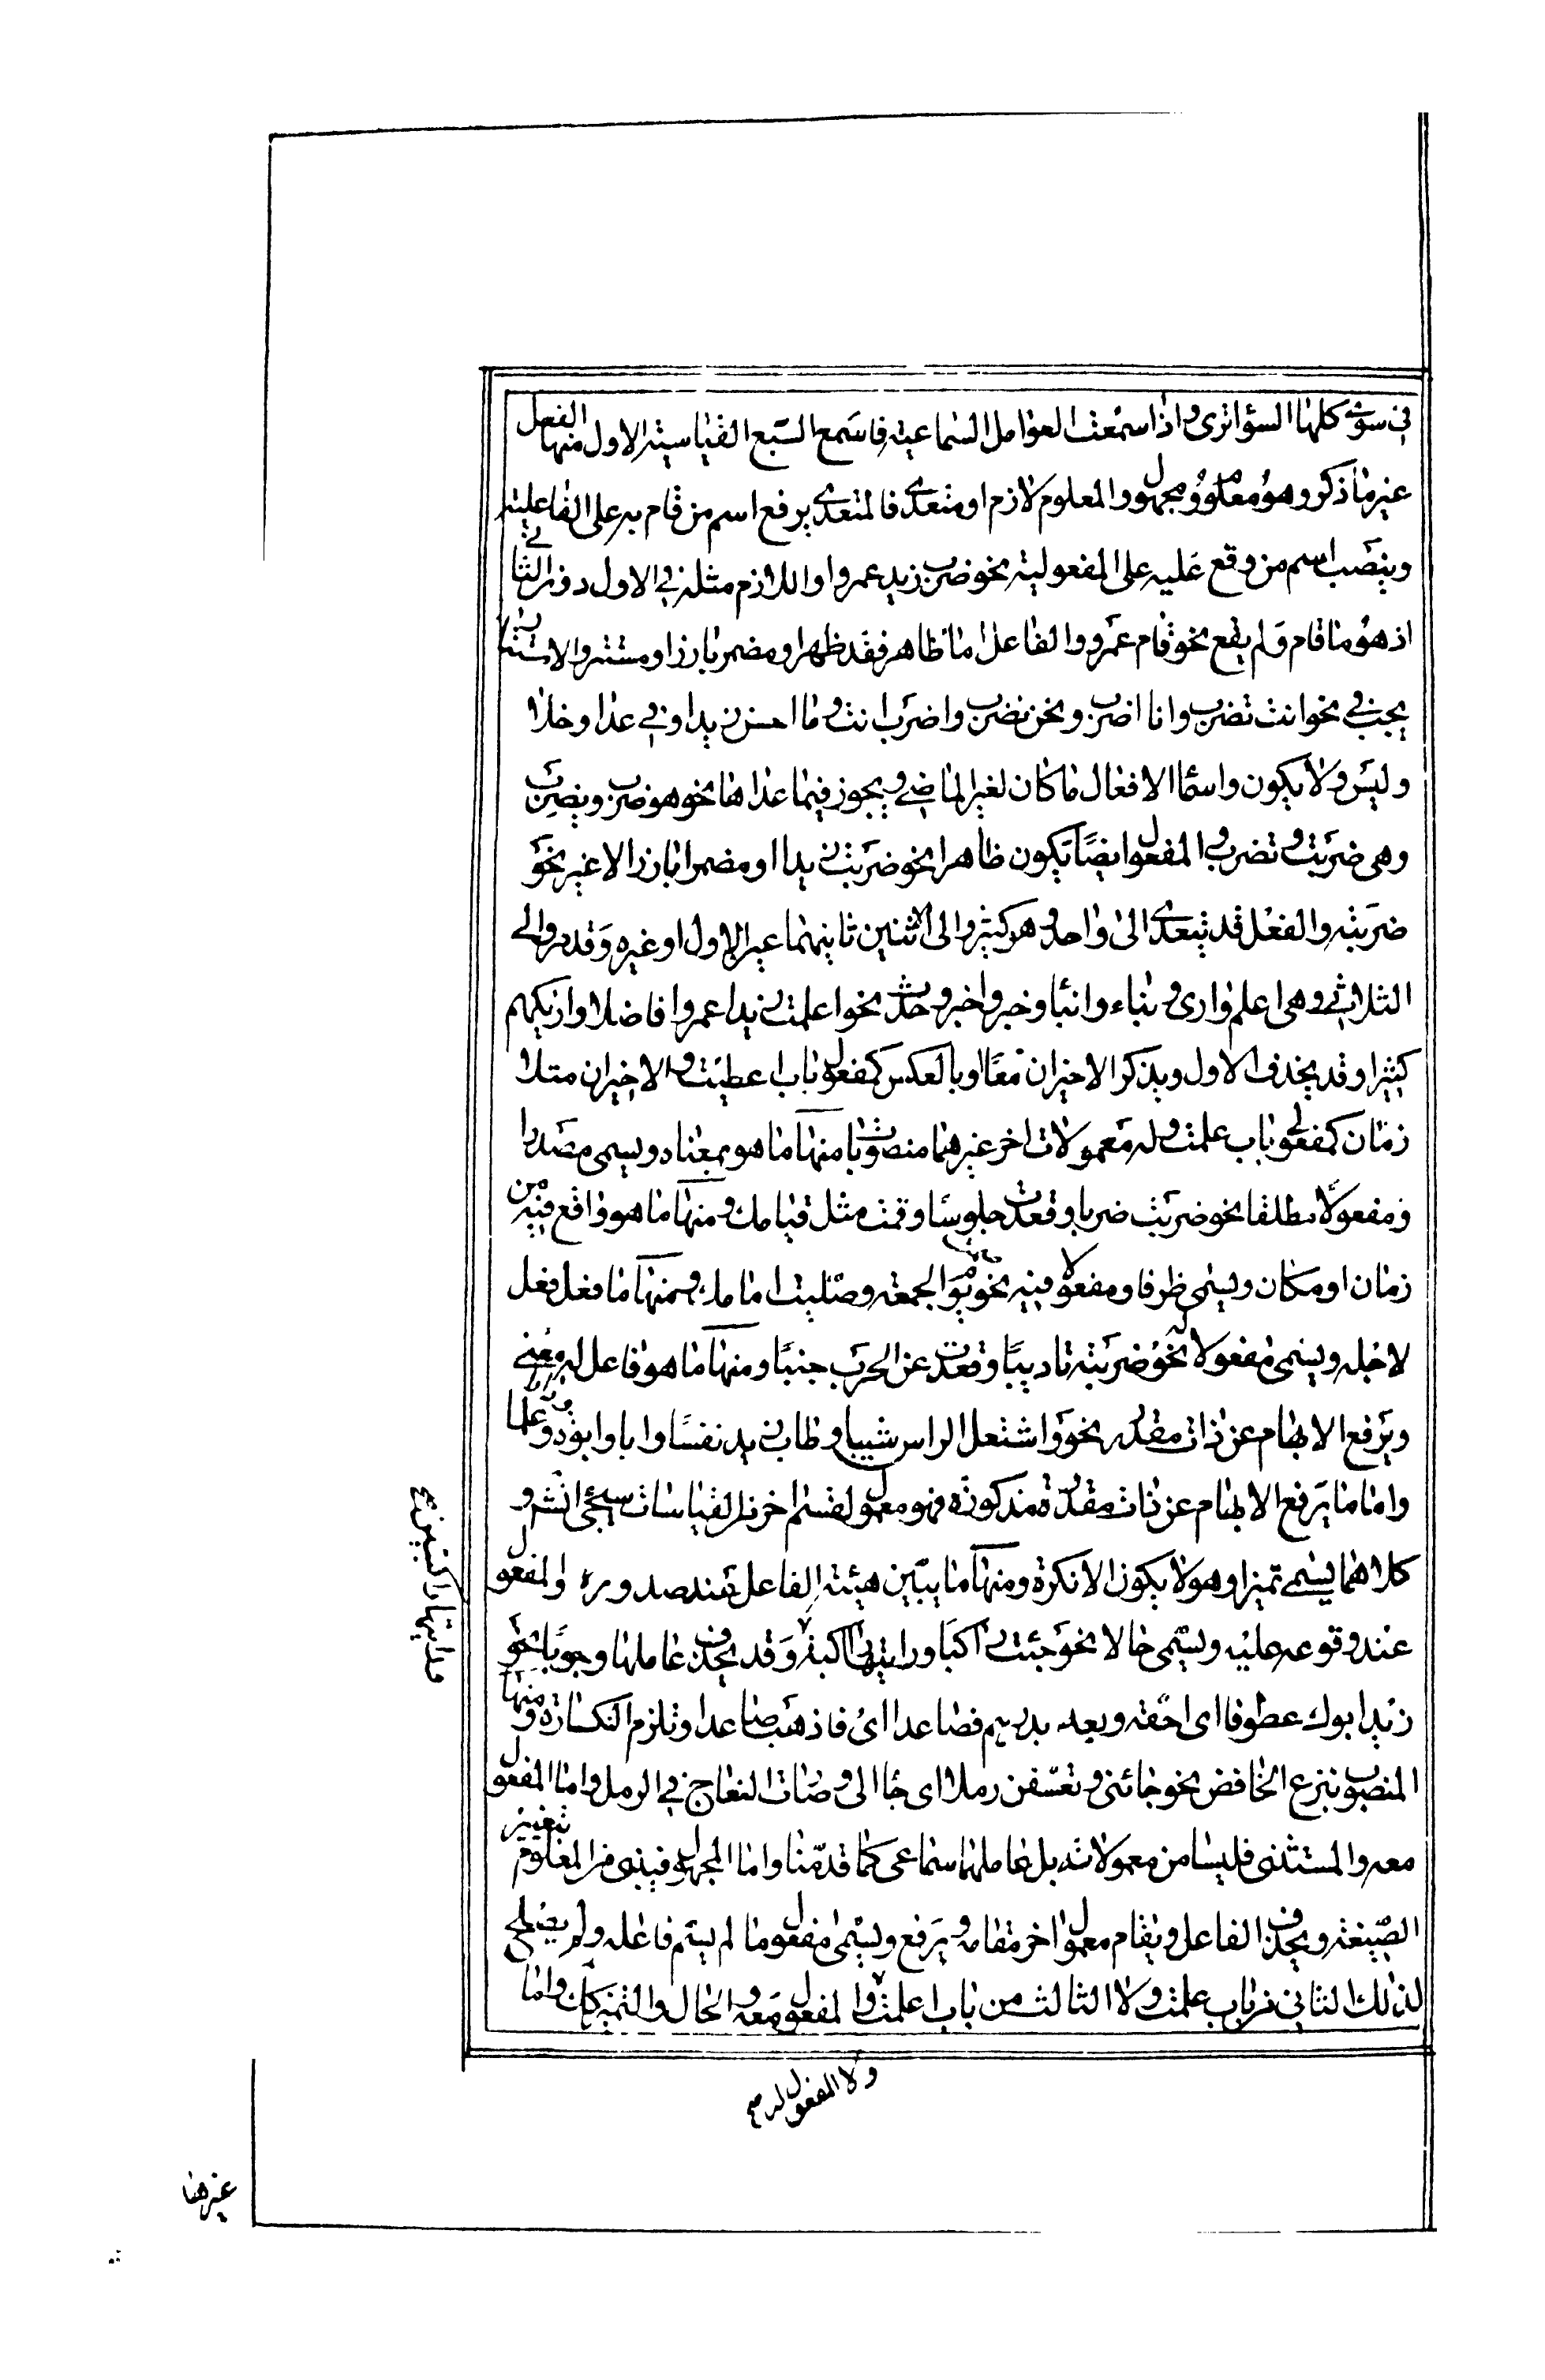 في سوى كلها السؤاترى واذا سمعت العوامل السماعية فاسمع السبع القياسية الاول منها الفعل
غير ما ذكر وهو معلوم ومجهول والمعلوم لازم او متعدى فالمتعدى يرفع اسم من قام به على الفاعلية
وينصب اسم من وقع عليه على المفعولية نحو ضرب زيد عمروا واللازم مثله في الاول دون الثاني
اذ هو ما قام ولم يقع نحو قام عمرو والفاعل اما ظاهر فقد ظهر او مضمر بارز او مستتر والاستتار
يجب في نحو انت تضرب وانا اضرب ونحن نضرب واضرب انت وما احسن زيدا وفي عدا وخلا
وليس ولا يكون واسماء الافعال ما كان لغير الماضي ويجوز فيما عداها نحو هو ضرب ويضرب
وهي ضربت وتضرب والمفعول ايضا يكون ظاهرا نحو ضربت زيدا او مضمرا بارزا لا غير نحو
ضربته والفعل قد يتعدى الى واحد وهو كثير والى الاثنين ثانيهما عير الاول او غيره وقد مر والى
الثلاثي وهي اعلم وارى ونباء وانبا وخبر واخبر وحدث نحو اعلمت زيدا عمروا فاضلا واريكهم
كثيرا وقد يحذف الاول ويذكر الاخيران معا او بالعكس كمفعولي باب اعطيت والاخيران متلا
زمان كمفعولي باب علمت وله معمولات اخر غيرهما منصوبات منها ما هو بمعناه ويسمى مصدرا
ومفعولا مطلقا نحو ضربت ضربا وقعدت جلوسا وقمت مثل قيامك ومنها ما هو واقع فيه من
زمان او مكان ويسمى ظرفا ومفعولا فيه نحو يوم الجمعة وصليت امامك ومنها ما فعل فعل
لاجله ويسمى مفعولا له نحو ضربته تاديبا وقعدت عن الحرب جبنا ومنها ما هو فاعل له معنى
ويرفع الابهام عن ذات مقدرة نحو واشتعل الراس شيبا وطاب زيد نفسا وابا وابوة وعلما
واما ما يرفع الابهام عن ذات مقدرة مذكورة فهو معمول لقسم اخر من القياسات سيجئ انشر و
كلاهما يسمى تميزا وهو لا يكون الا نكرة ومنها ما يبين هيئة الفاعل عند صدوره والمفعول
عند وقوعه عليه ويسمى حالا نحو جئت راكبا ورايتها راكبة وقد يحذف عاملها وجوبا نحو
زيد ابوك عطوفا اى احقه وبعه بدرهم فصاعدا اى فاذهب صاعدا وتلزم النكارة ومنها
المنصوب بنزع الخافض نحو جائني وتعسفن رملا اى جاء الى وصات النعاج في الرمل واما المفعول
معه والمستثنى فليسا من معمولاته بل عاملهما سماعى كما قدمنا واما المجهول فيبنى من المعلوم بتغيير
الصيغة ويحذف الفاعل ويقام معمول اخر مقامه ويرفع ويسمى مفعول ما لم يسم فاعله ولم يصلح
لذلك الثاني من باب علمت ولا الثالث من باب اعلمت والمفعول معه والحال والتميز كك واما
ولا المفعول له صح
غيرها